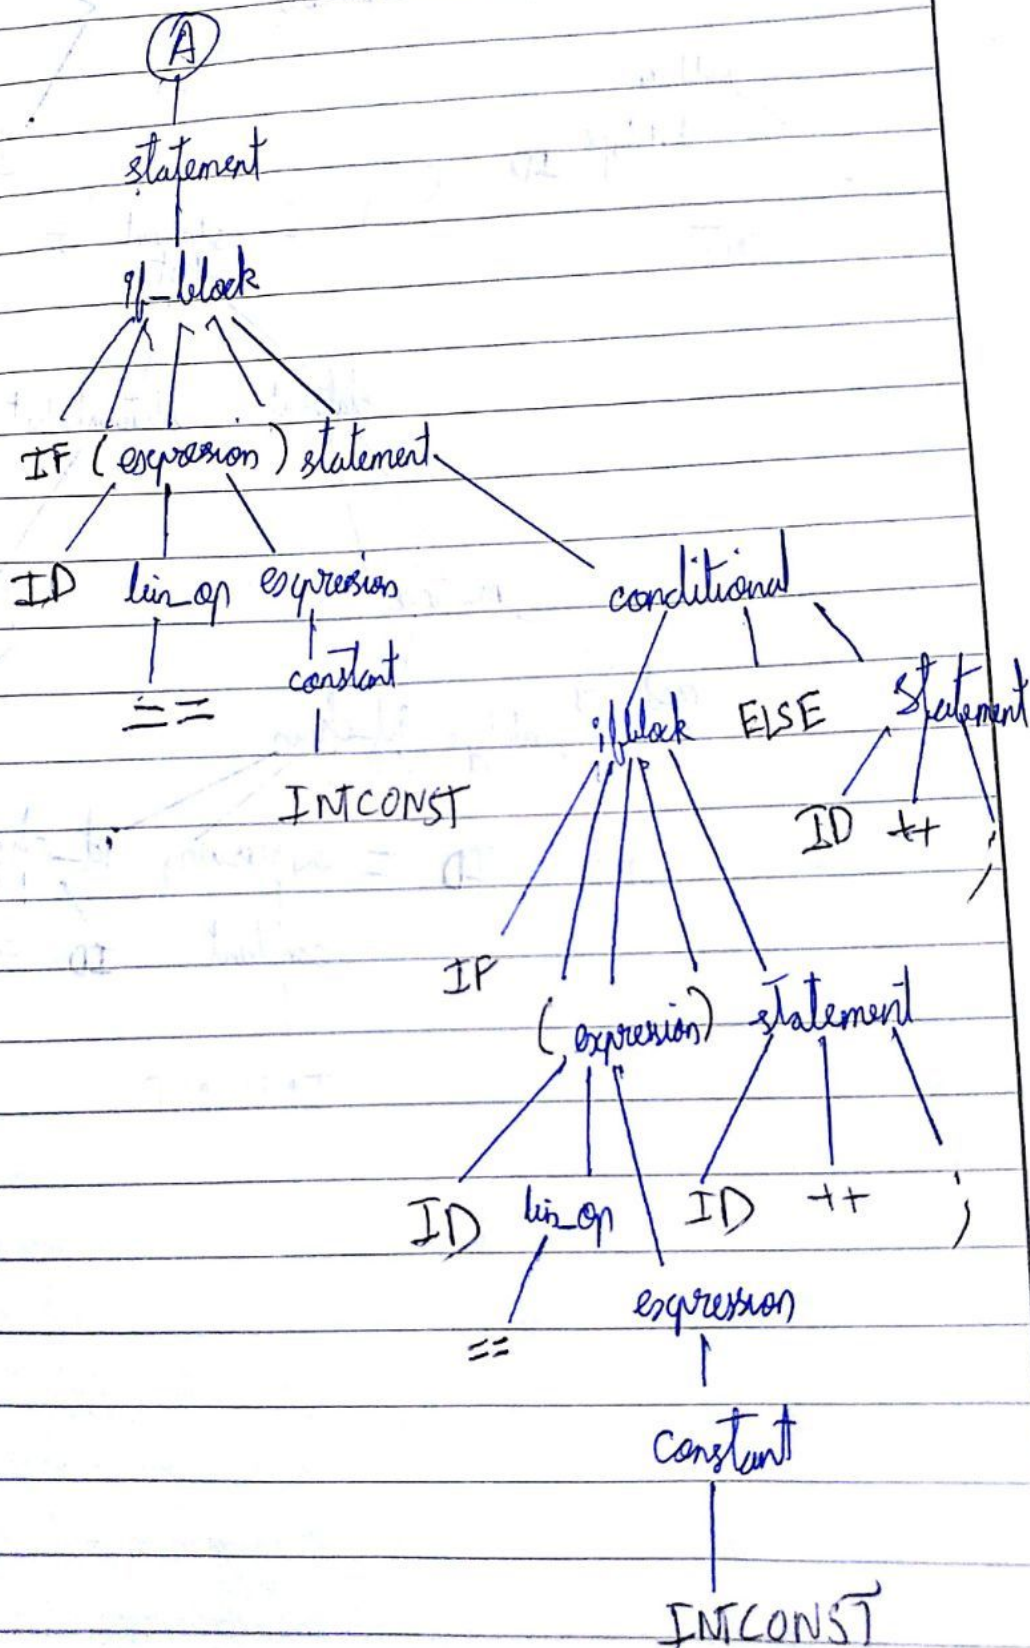 A
statement
if_block
IF ( expression ) statement
ID bin_op expression
conditional
== constant
ifblock ELSE Statement
INTCONST
ID ++ ;
IF
( expression ) statement
ID bin_op ID ++ ;
expression
==
constant
INTCONST